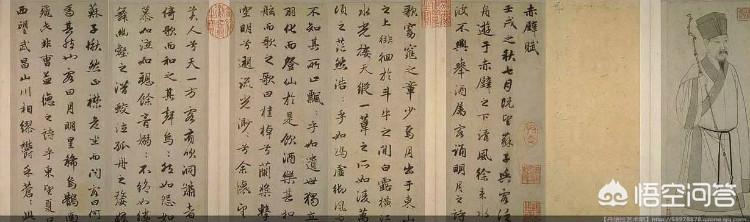 赤壁賦
壬戌之秋七月既望蘇子與客泛
舟游于赤壁之下清風徐来水
波不興舉酒屬客誦明月之詩
歌窈窕之章少焉月出于東山
之上徘徊於斗牛之間白露橫江
水光接天縱一葦之所如凌萬
頃之茫然浩〻乎如馮虛御風而
不知其所止飄〻乎如遺世獨立
羽化而登仙於是飲酒樂甚扣
舷而歌之歌曰桂棹兮蘭槳擊
空明兮泝流光渺〻兮余懷望
美人兮天一方客有吹洞簫者
倚歌而和之其聲嗚〻然如怨如
慕如泣如訴餘音嫋〻不絕如縷
舞幽壑之潛蛟泣孤舟之嫠婦
蘇子愀然正襟危坐而問客曰何
為其然也客曰月明星稀烏鵲南
飛此非曹孟德之詩乎東望夏口
西望武昌山川相繆鬱乎蒼〻
悟空问答